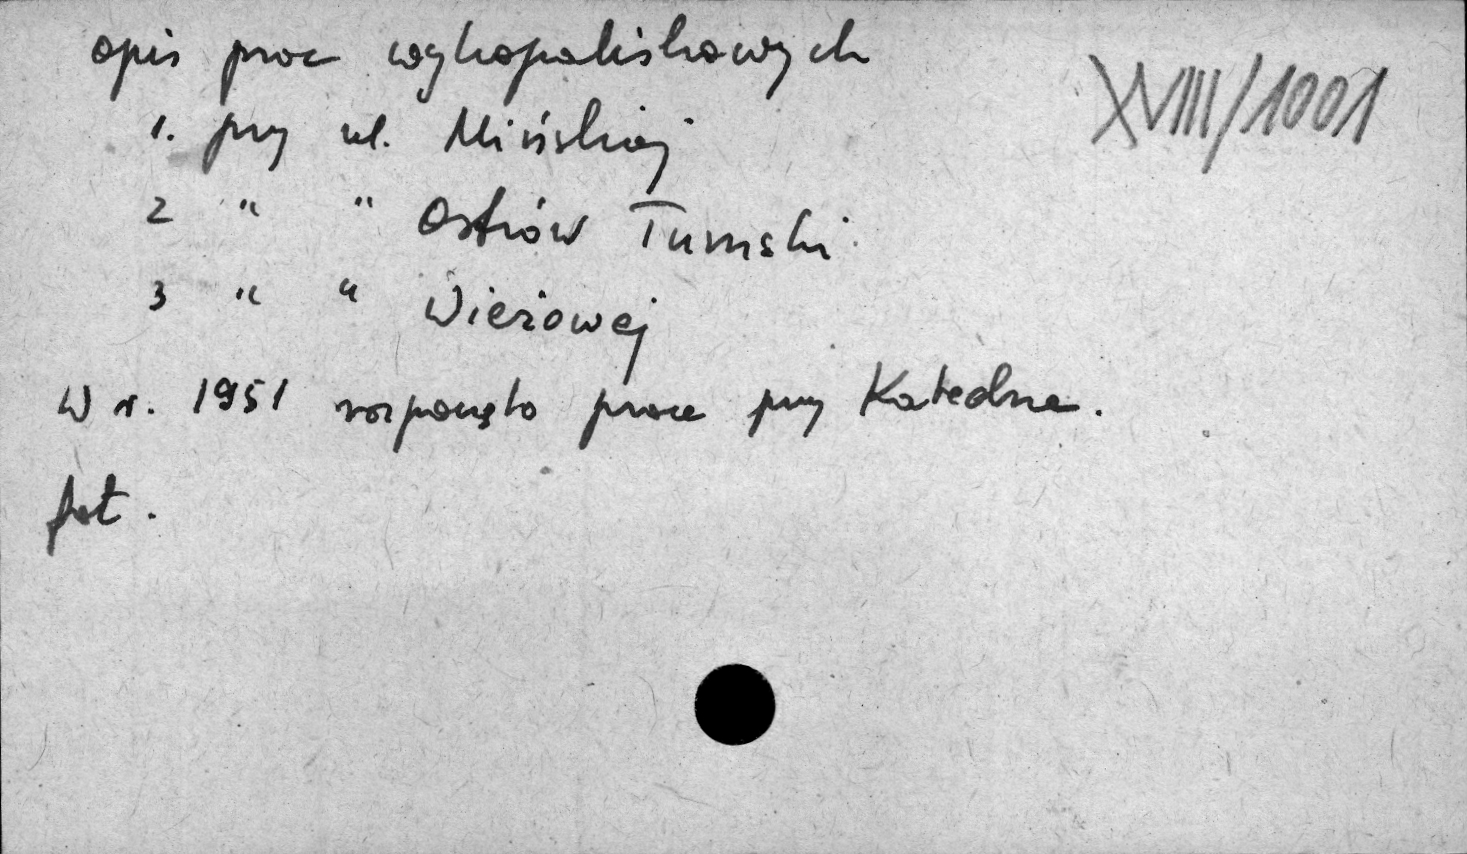 opis prac wykopaliskowych
XVIII/1001
1. przy ul. Mińskiej
2 " " Ostrów Tumski
3 " " Wieżowej
W r. 1951 rozpoczęto prace przy Katedrze.
fot.